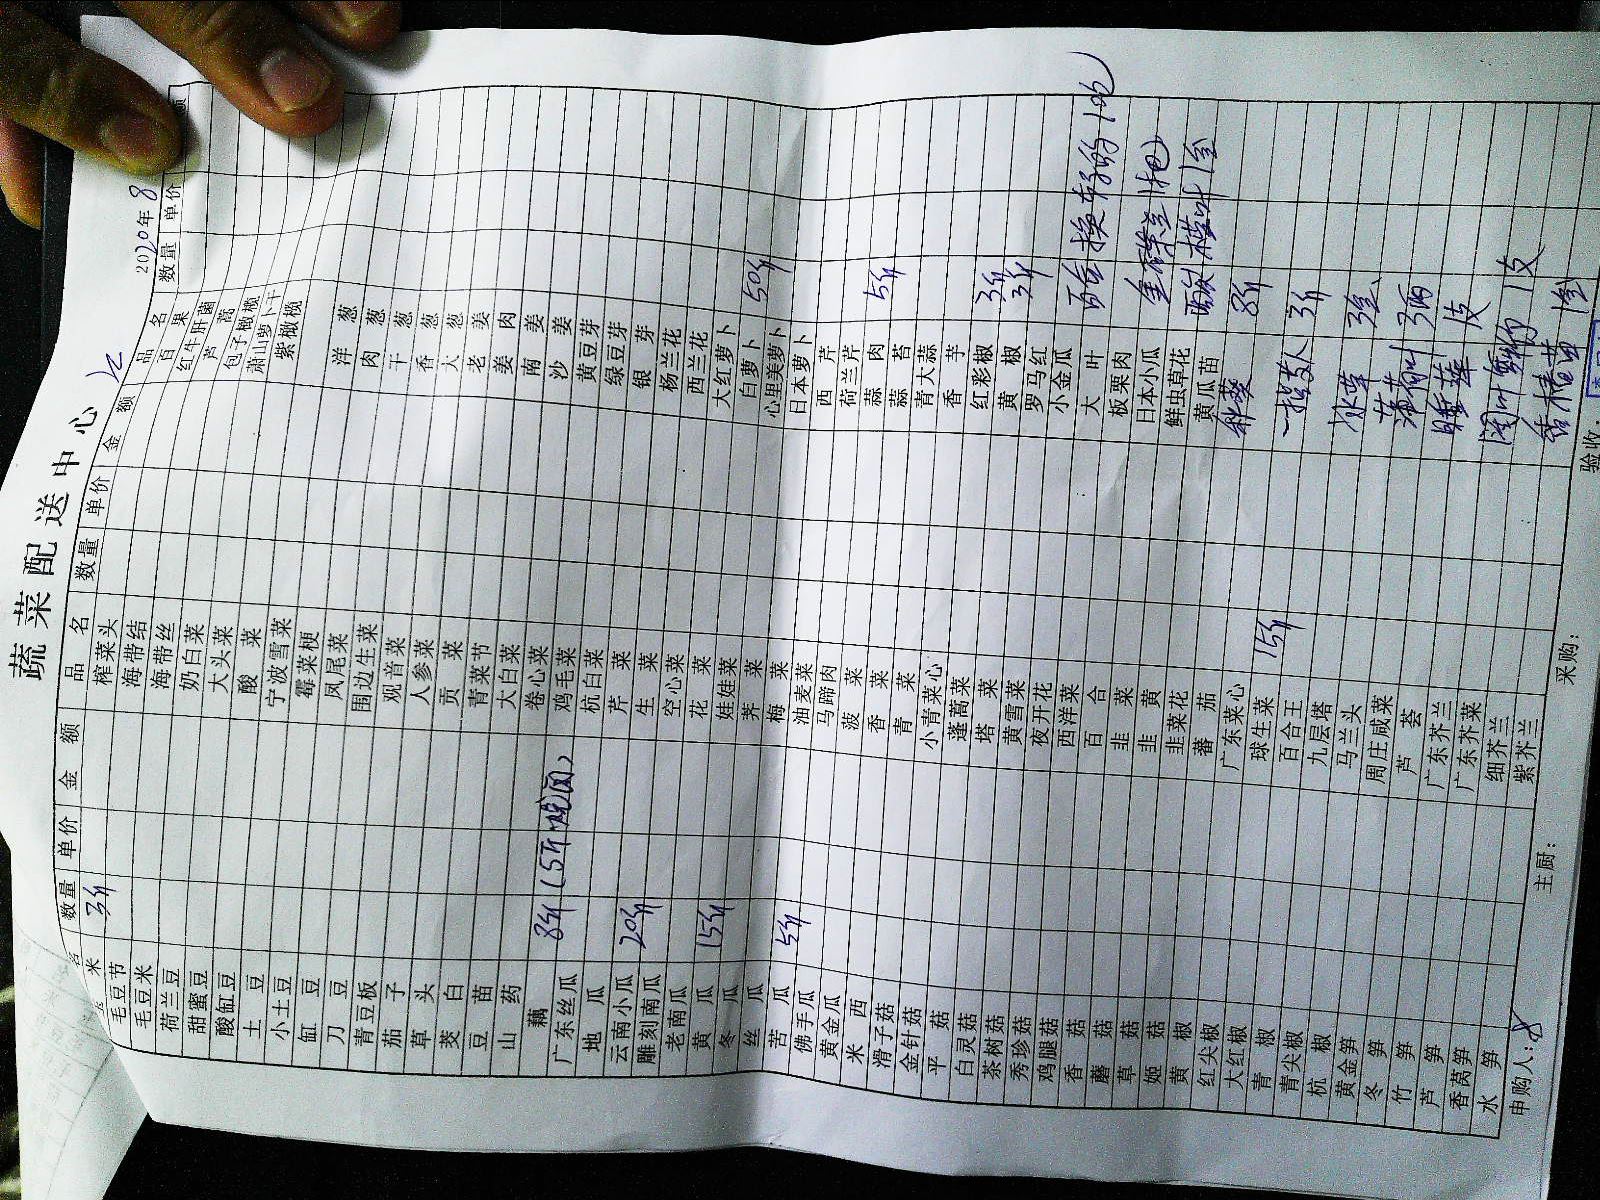 蔬菜配送中心
2020年8
品名 数量 单价 金额 品名 数量 单价 金额 品名 数量 单价
米 3斤 榨菜头 百果
毛豆节 海带结 红牛肝菌
毛豆米 海带丝 芦蒿
荷兰豆 奶白菜 包子橄榄
甜蜜豆 大头菜 萧山萝卜干
酸缸豆 酸菜 紫橄榄
土豆 宁波雪菜
小土豆 霉菜梗 洋葱
缸豆 凤尾菜 肉葱
刀豆 围边生菜 干葱
青豆板 观音菜 香葱
茄子 人参菜 大葱
草头 贡菜 老姜
茭白 青菜节 姜肉
豆苗 大白菜 南姜
山药 卷心菜 沙姜
藕 8斤 鸡毛菜 黄豆芽
广东丝瓜 杭白菜 绿豆芽
地瓜 芹菜 银芽
云南小瓜 20斤 生菜 杨兰花
雕刻南瓜 空心菜 西兰花
老南瓜 花菜 大红萝卜
黄瓜 15斤 娃娃菜 白萝卜 50斤
冬瓜 荠菜 心里美萝卜
丝瓜 梅菜 日本萝卜
苦瓜 5斤 油麦菜 西芹
佛手瓜 马蹄肉 荷兰芹
黄金瓜 菠菜 蒜肉 5斤
米西 香菜 蒜苔
滑子菇 青菜 青大蒜
金针菇 小青菜心 香芋
平菇 蓬蒿菜 红彩椒 3斤
白灵菇 塔菜 黄椒 3斤
茶树菇 黄雪菜 罗马红
秀珍菇 夜开花 小金瓜
鸡腿菇 西洋菜 大叶
香菇 百合 板栗肉
蘑菇 韭菜 日本小瓜
草菇 韭黄 鲜虫草花
姬菇 韭菜花 黄瓜苗
黄椒 蕃茄 秋葵 8斤
红尖椒 广东菜心
大红椒 球生菜 15斤
青椒 百合王
青尖椒 九层塔
杭椒 马兰头
黄金笋 周庄咸菜
冬笋 芦荟
竹笋 广东芥兰
芦笋 广东芥菜
香莴笋 细芥兰
水笋 紫芥兰
申购人: 主厨: 采购: 验收: